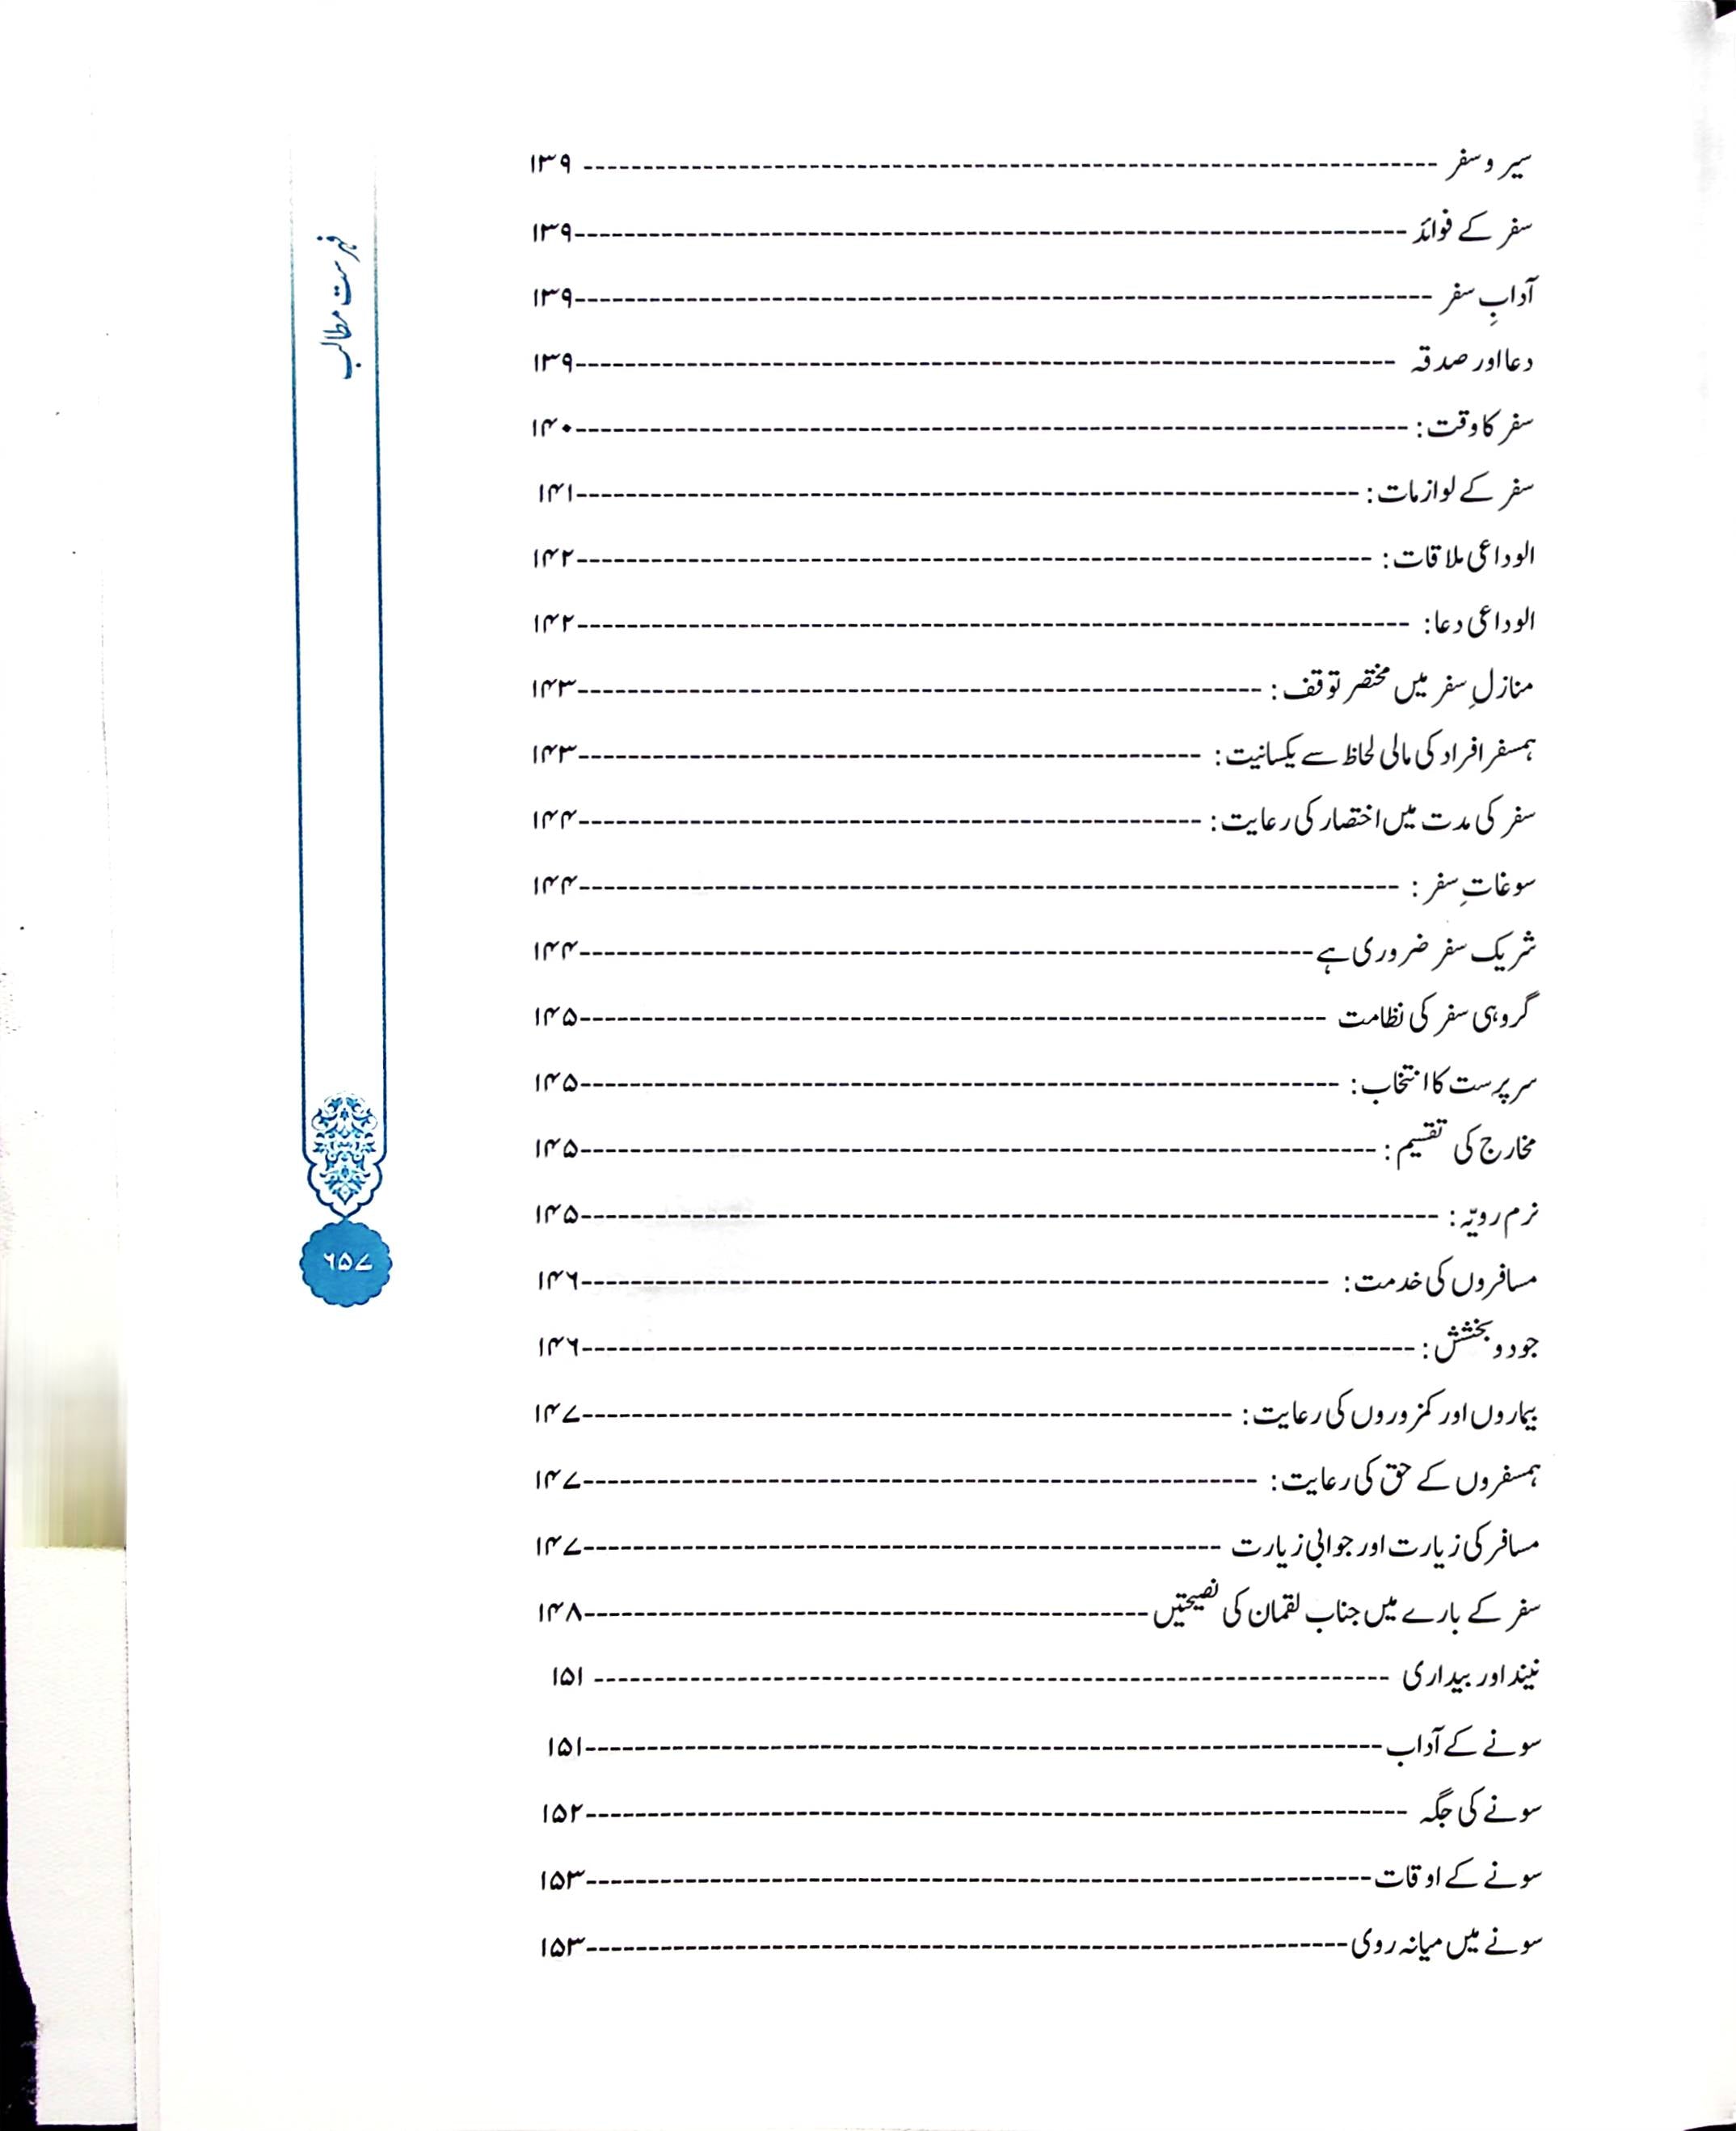 سیر و سفر ---------- ۱۳۹
سفر کے فوائد ---------- ۱۳۹
آدابِ سفر ---------- ۱۳۹
دعا اور صدقہ ---------- ۱۳۹
سفر کا وقت: ---------- ۱۴۰
سفر کے لوازمات: ---------- ۱۴۱
الوداعی ملاقات: ---------- ۱۴۲
الوداعی دعا: ---------- ۱۴۲
منازلِ سفر میں مختصر توقف: ---------- ۱۴۳
ہمسفر افراد کی مالی لحاظ سے یکسانیت: ---------- ۱۴۳
سفر کی مدت میں اختصار کی رعایت: ---------- ۱۴۴
سوغاتِ سفر: ---------- ۱۴۴
شریک سفر ضروری ہے ---------- ۱۴۴
گروہی سفر کی نظامت ---------- ۱۴۵
سرپرست کا انتخاب: ---------- ۱۴۵
مخارج کی تقسیم: ---------- ۱۴۵
نرم رویّہ: ---------- ۱۴۵
مسافروں کی خدمت: ---------- ۱۴۶
جود و بخشش: ---------- ۱۴۶
بیماروں اور کمزوروں کی رعایت: ---------- ۱۴۷
ہمسفروں کے حق کی رعایت: ---------- ۱۴۷
مسافر کی زیارت اور جوابی زیارت ---------- ۱۴۷
سفر کے بارے میں جناب لقمان کی نصیحتیں ---------- ۱۴۸
نیند اور بیداری ---------- ۱۵۱
سونے کے آداب ---------- ۱۵۱
سونے کی جگہ ---------- ۱۵۲
سونے کے اوقات ---------- ۱۵۳
سونے میں میانہ روی ---------- ۱۵۳
فہرست مطالب
۶۵۷